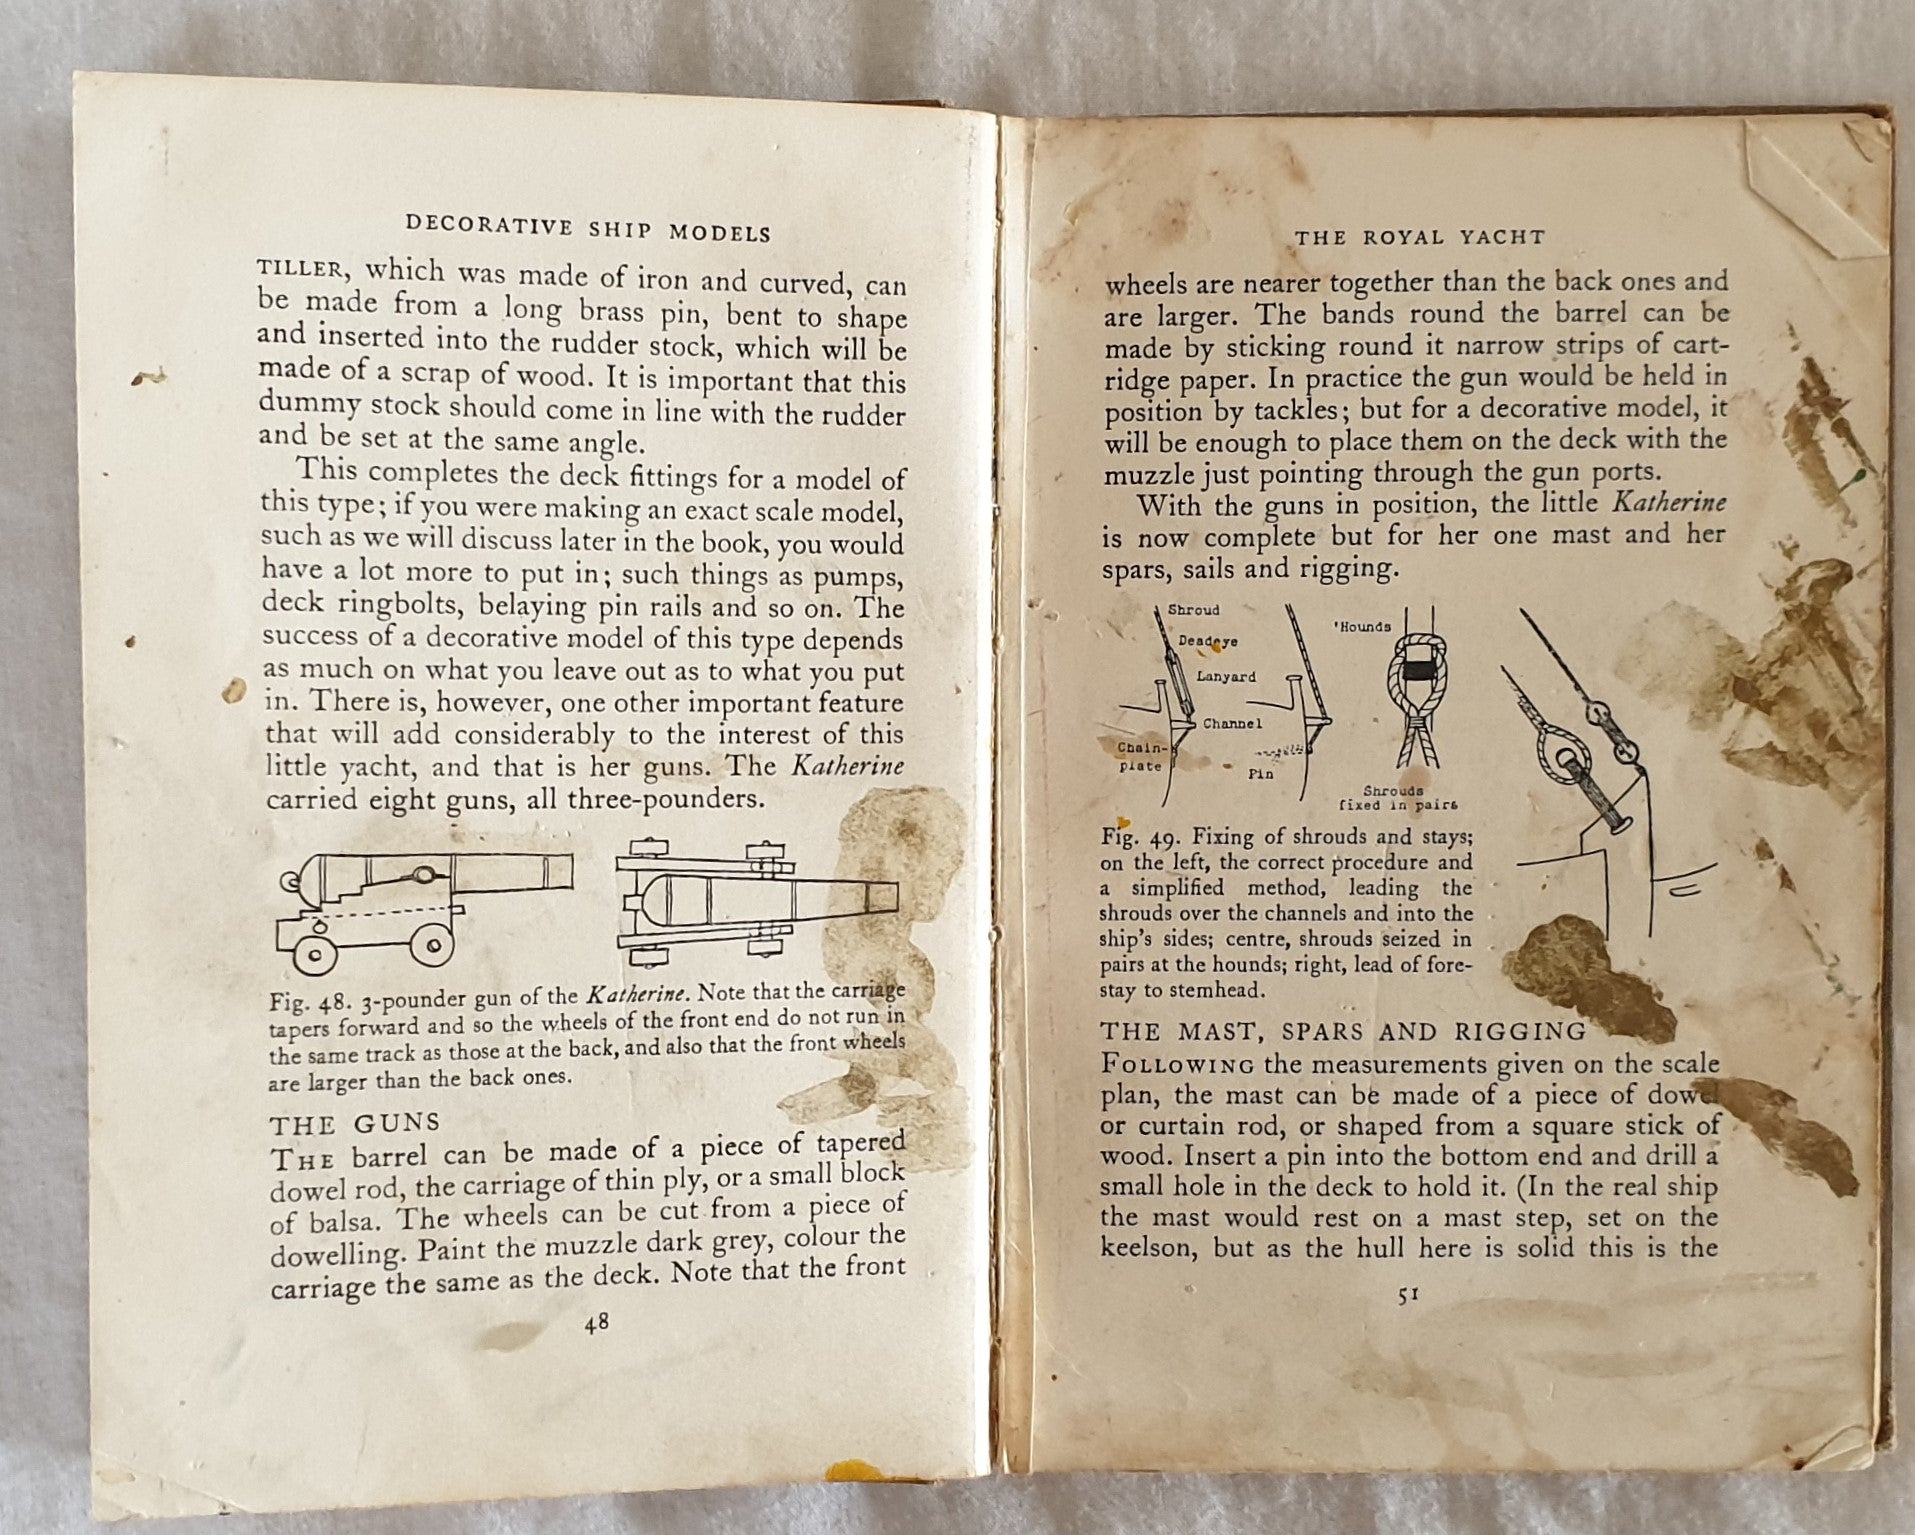 DECORATIVE SHIP MODELS
TILLER, which was made of iron and curved, can
be made from a long brass pin, bent to shape
and inserted into the rudder stock, which will be
made of a scrap of wood. It is important that this
dummy stock should come in line with the rudder
and be set at the same angle.
This completes the deck fittings for a model of
this type; if you were making an exact scale model,
such as we will discuss later in the book, you would
have a lot more to put in; such things as pumps,
deck ringbolts, belaying pin rails and so on. The
success of a decorative model of this type depends
as much on what you leave out as to what you put
in. There is, however, one other important feature
that will add considerably to the interest of this
little yacht, and that is her guns. The Katherine
carried eight guns, all three-pounders.
Fig. 48. 3-pounder gun of the Katherine. Note that the carriage
tapers forward and so the wheels of the front end do not run in
the same track as those at the back, and also that the front wheels
are larger than the back ones.
THE GUNS
THE barrel can be made of a piece of tapered
dowel rod, the carriage of thin ply, or a small block
of balsa. The wheels can be cut from a piece of
dowelling. Paint the muzzle dark grey, colour the
carriage the same as the deck. Note that the front
48
THE ROYAL YACHT
wheels are nearer together than the back ones and
are larger. The bands round the barrel can be
made by sticking round it narrow strips of cart-
ridge paper. In practice the gun would be held in
position by tackles; but for a decorative model, it
will be enough to place them on the deck with the
muzzle just pointing through the gun ports.
With the guns in position, the little Katherine
is now complete but for her one mast and her
spars, sails and rigging.
Shroud
Deadeye
Lanyard
Channel
Chain-
plate
Pin
'Hounds
Shrouds
fixed in pairs
Fig. 49. Fixing of shrouds and stays;
on the left, the correct procedure and
a simplified method, leading the
shrouds over the channels and into the
ship's sides; centre, shrouds seized in
pairs at the hounds; right, lead of fore-
stay to stemhead.
THE MAST, SPARS AND RIGGING
FOLLOWING the measurements given on the scale
plan, the mast can be made of a piece of dowel
or curtain rod, or shaped from a square stick of
wood. Insert a pin into the bottom end and drill a
small hole in the deck to hold it. (In the real ship
the mast would rest on a mast step, set on the
keelson, but as the hull here is solid this is the
51